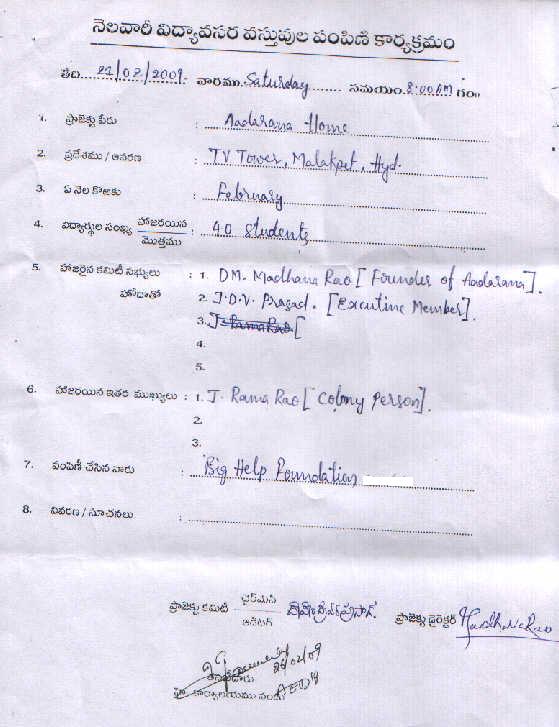 నెలవారీ విద్యావసర వస్తువుల పంపిణి కార్యక్రమం
తేది. 21/02/2009. వారము. Saturday సమయం. 8:00AM గం॥
1. ప్రాజెక్టు పేరు : Aadarana Home
2. ప్రదేశము / ఆవరణ : TV Tower, Malakpet, Hyd.
3. ఏ నెల కొఱకు : February
4. విద్యార్థుల సంఖ్య హాజరయిన / మొత్తము : 40 Students
5. హాజరైన కమిటీ సభ్యులు : 1. DM. Madhana Rao [Founder of Aadarana].
హోదాతో 2. J.D.V. Prasad. [Executine Member].
3. J. Rama Rao [
4.
5.
6. హాజరయిన ఇతర ముఖ్యులు : 1. J. Rama Rao [Colony Person].
2.
3.
7. పంపిణీ చేసిన వారు : Big Help Foundation
8. వివరణ / సూచనలు :
ప్రాజెక్టు కమిటీ ఛైర్మెన్ / ఆడిటర్ ప్రాజెక్టు డైరెక్టర్ Madhana Rao